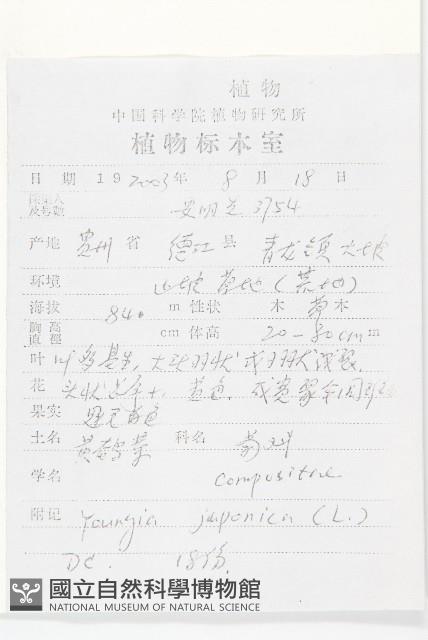 植物
中国科学院植物研究所
植物标本室
日期 19 2003年 8月 18日
采集人及号数 安明态 3754
产地 贵州省 德江县 青龙镇 大坡
环境 山坡草地(荒地)
海拔 840 m 性状 木 草本
胸高直径 cm 体高 20-80cm m
叶 叶多基生,大头羽状或羽状深裂
花 头状花序小,黄色,
果实
土名 黄鹌菜 科名 菊科
学名 Compositae
附记 Youngia japonica (L.)
DC. 18份
國立自然科學博物館
NATIONAL MUSEUM OF NATURAL SCIENCE